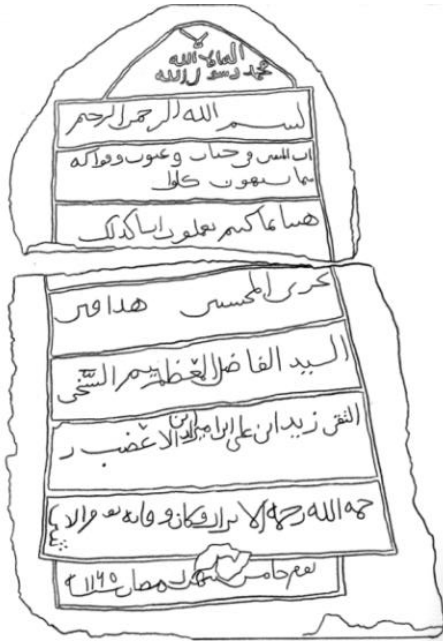 لا اله الا الله
محمد رسول الله
بسم الله الرحمن الرحيم
ان المتقين في جنات وعيون وفواكه
مما يشتهون كلوا
هنيئا بما كنتم تعملون انا كذلك
نجزي المحسنين هذا قبر
السيد الفاضل السخي
التقي زيد ابن علي ابن الاغضب ر
حمه الله رحمة الابرار وكان وفاته يوم
خامس شهر رمضان